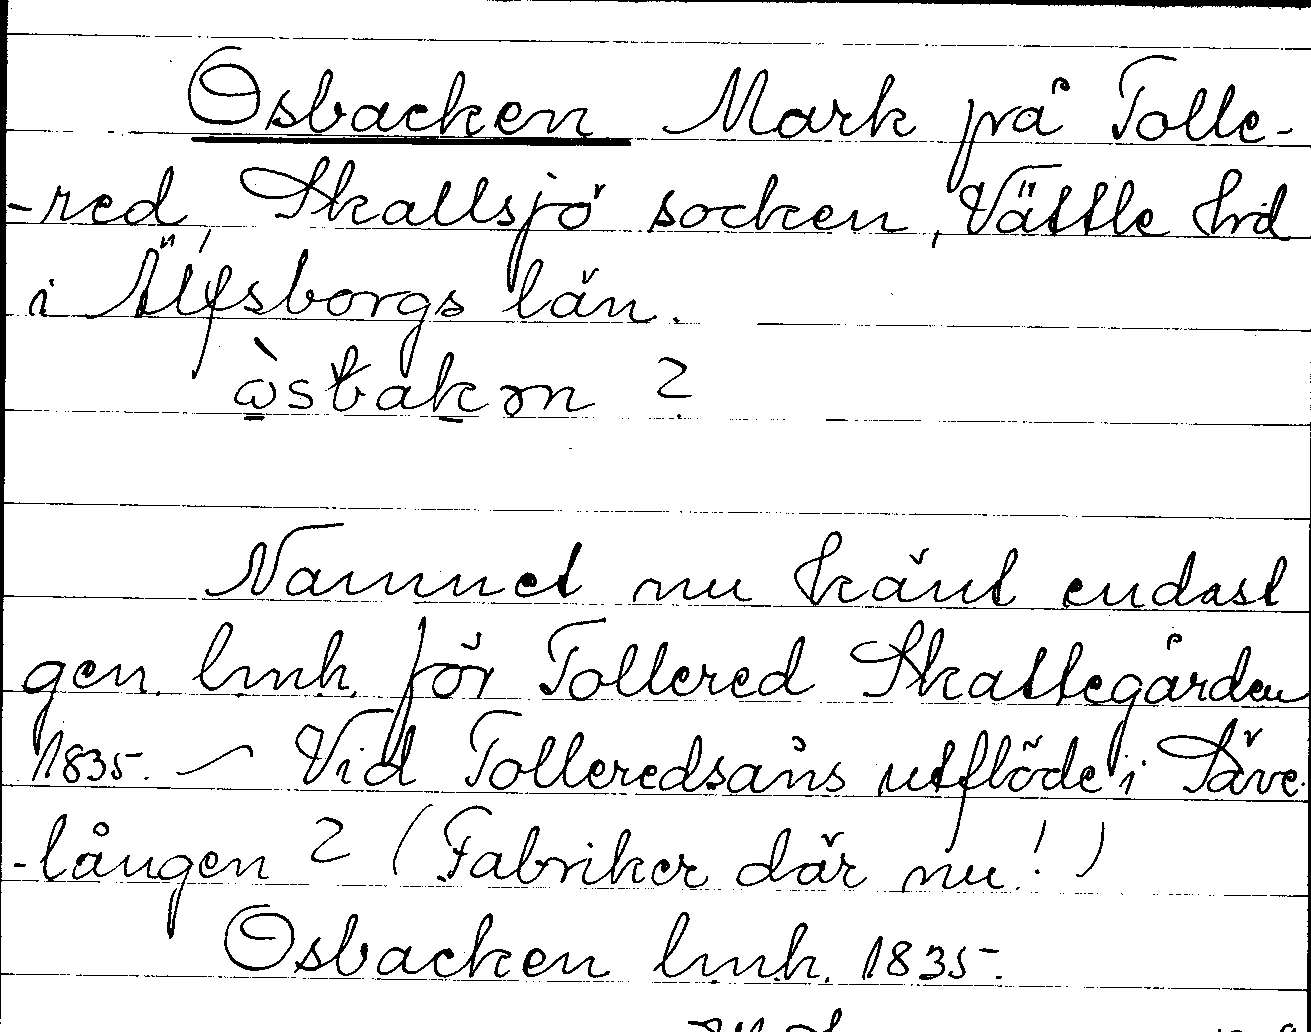 Osbacken Mark på Tolle-
-red, Skallsjö socken, Vättle hrd
i Älfsborgs län.
ὼsbakɘn ?
Namnet nu känt endast
gen. lmh. för Tollered Skattegården
1835. – Vid Tolleredsåns utflöde i Säve-
-lången ? (Fabriker där nu!)
Osbacken lmh. 1835.